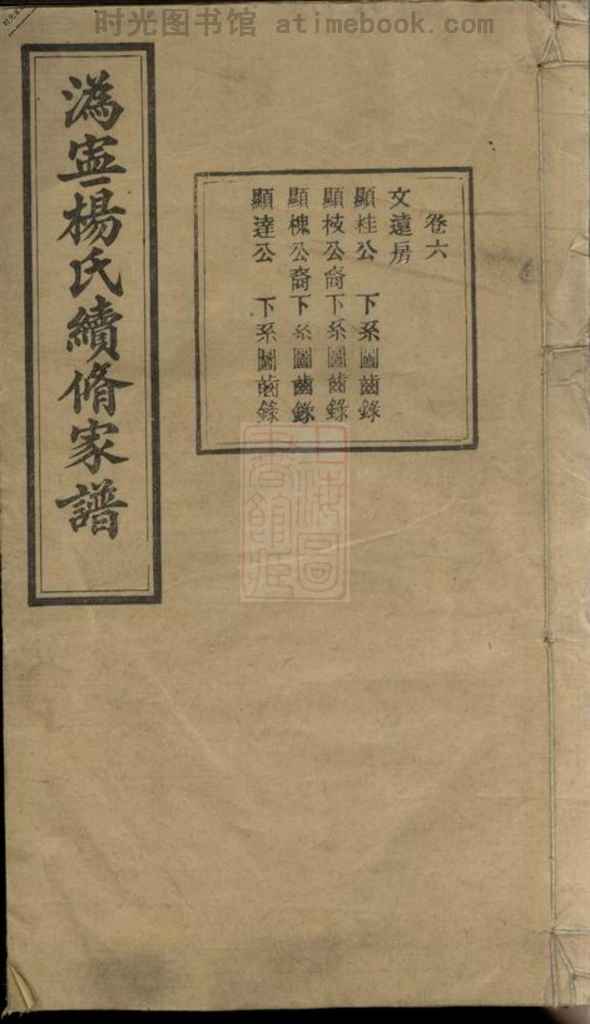 时光图书馆 atimebook.com
溈寍楊氏續脩家譜
卷六
文遠房
顯桂公 下系圖齒錄
顯枝公裔下系圖齒錄
顯槐公裔下系圖齒錄
顯達公 下系圖齒錄